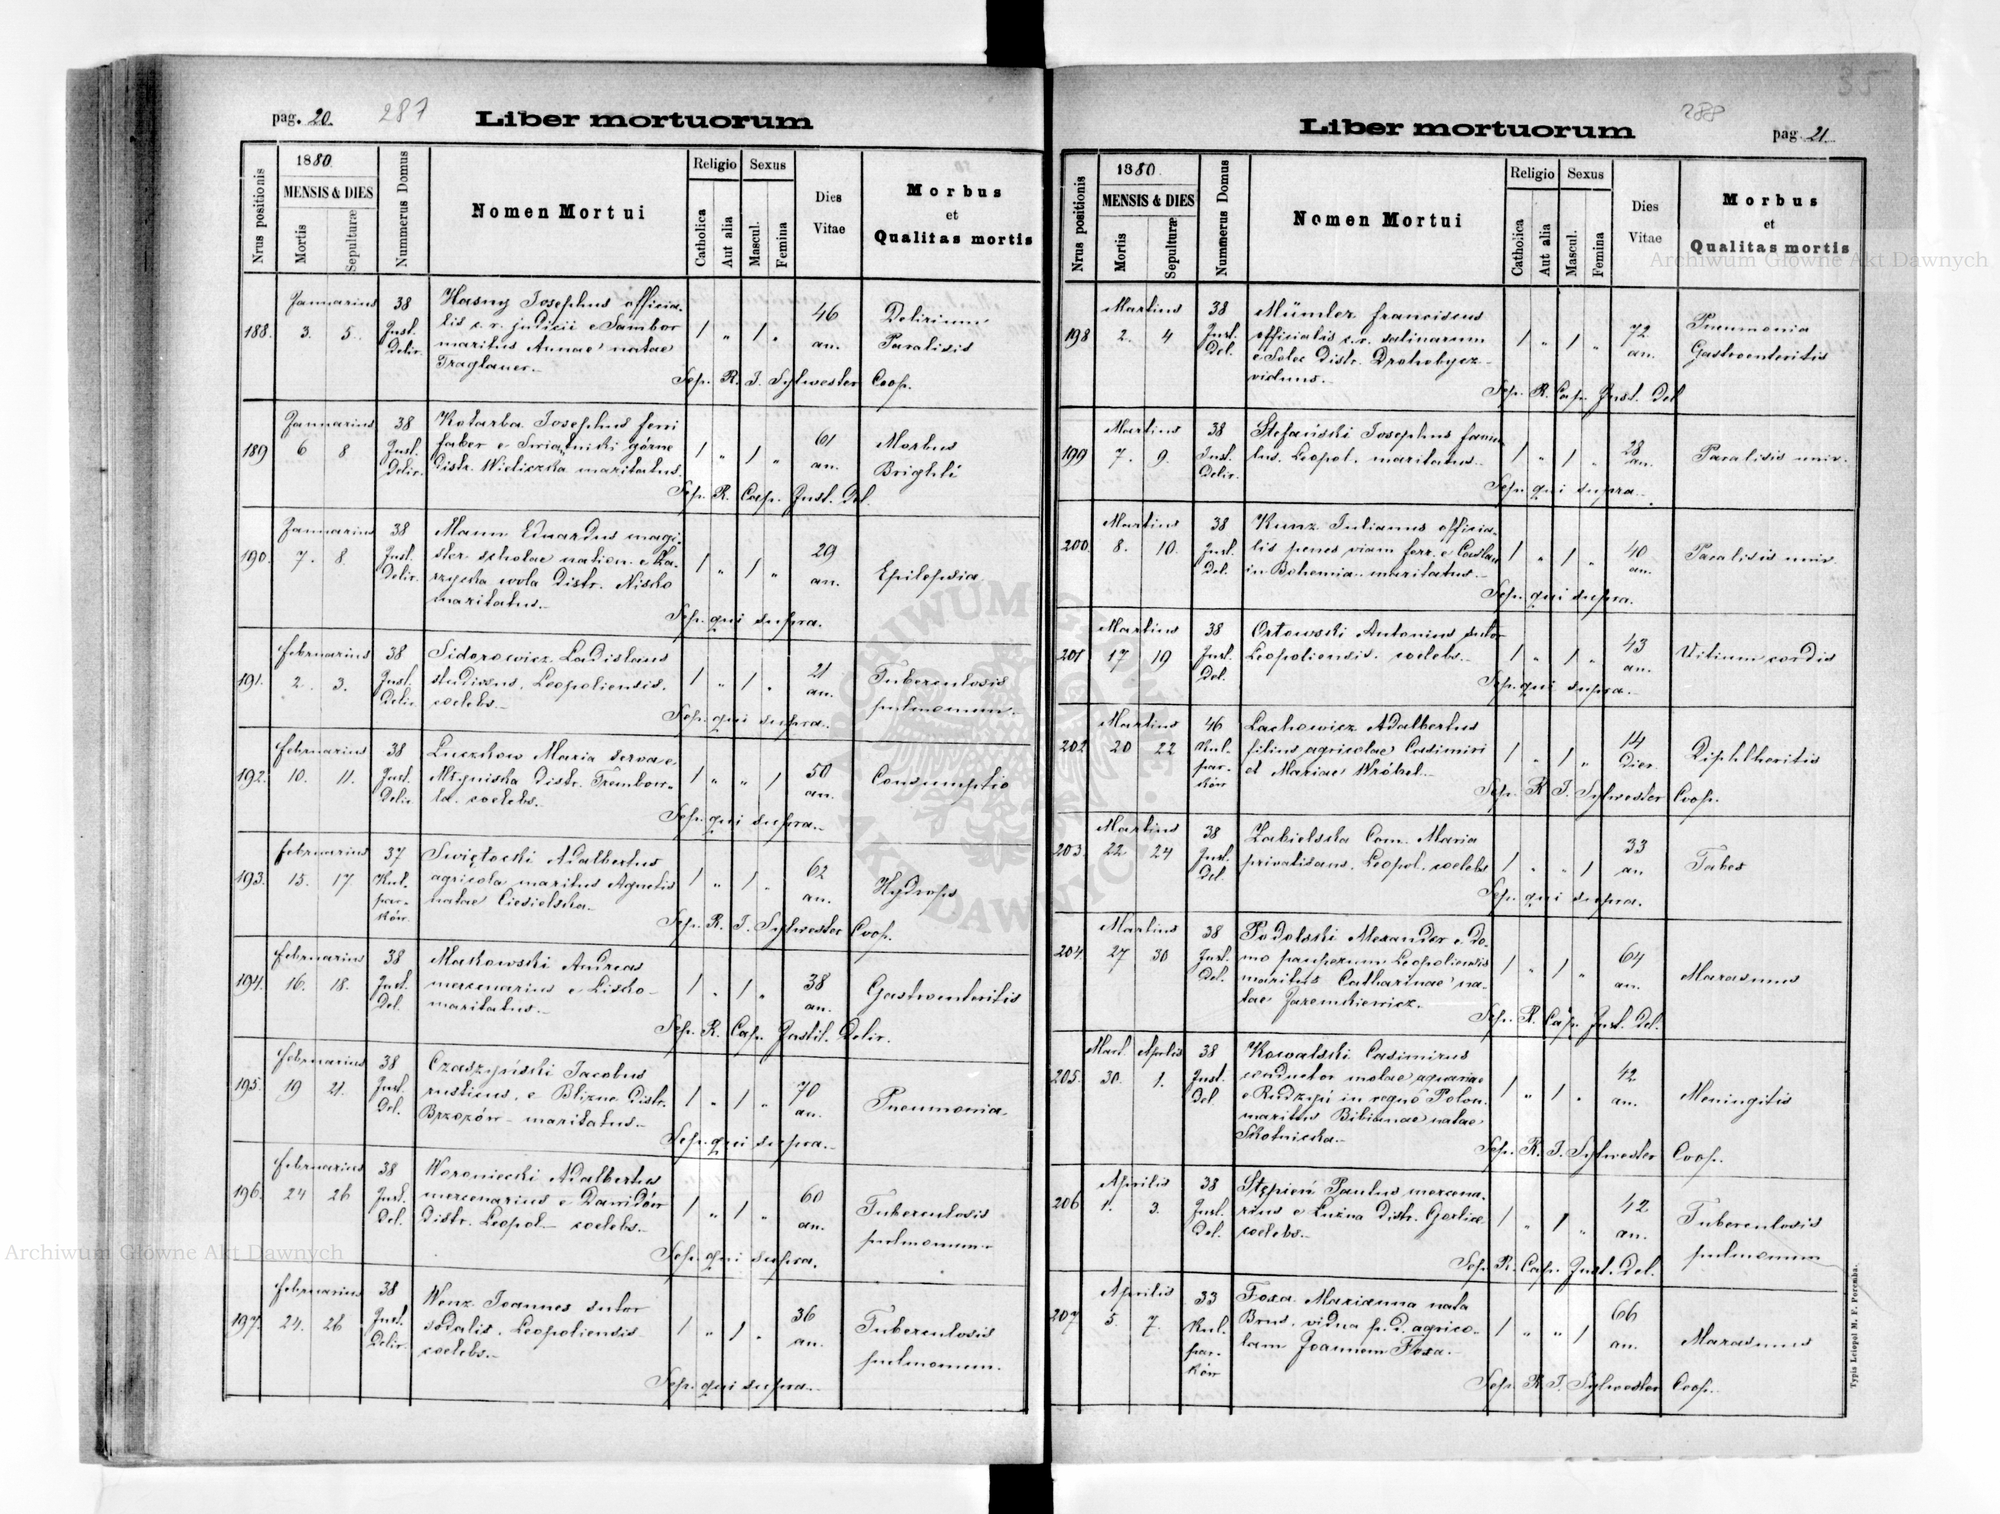 pag. 20. 287
Liber mortuorum
Nrus positionis
1880.
MENSIS & DIES
Mortis
Sepulturæ
Nummerus Domus
Nomen Mortui
Religio
Catholica
Aut alia
Sexus
Mascul.
Femina
Dies
Vitae
Morbus
et
Qualitas mortis
188. Januarius 3. 5. 38 Inst. Delir.
Josephus officia-
lis c. r. judicii e Sambor
maritus Annae natae
Traglauer.
1 „ 1 „ 46 an. Delirium
Paralisis
Sep. R. I. Sylwester Coop.
189 Januarius 6 8 38 Inst. Delir.
Kotarba Josephus ferri
faber e Swiątniki górne
Distr. Wieliczka maritatus
1 „ 1 „ 61 an. Morbus
Brighti
Sep. R. Cap. Inst. Del.
190. Januarius 7. 8. 38 Inst. Delir.
Mann Eduardus magi-
ster scholae nation. e
wola Distr. Nisko
maritatus.
1 „ 1 „ 29 an. Epilepsia
Sep. qui supra.
191. Februarius 2. 3. 38 Inst. Delir.
Sidorowicz Ladislaus
studiosus. Leopoliensis.
coelebs.
1 „ 1 „ 21 an. Tuberculosis
pulmonum.
Sep. qui supra.
192. Februarius 10. 11. 38 Inst. Delir.
Luczkow Maria serva e
Młyniska Distr. Trembow-
la. coelebs.
1 „ „ 1 50 an. Consumptio
Sep. qui supra.
193. Februarius 15. 17. 37 Kul-
par-
ków.
Swiętocki Adalbertus
agricola maritus Agnetis
natae Ciesielska.
1 „ 1 „ 62 an. Hydrops
Sep. R. I. Sylwester Coop.
194. Februarius 16. 18. 38 Inst. Del.
Makowski Andreas
mercenarius e Lisko
maritatus.
1 „ 1 „ 38 an. Gastroenteritis
Sep. R. Cap. Instit. Delir.
195. Februarius 19 21. 38 Inst. Del.
Czaszyński Jacobus
rusticus. e Blizne Distr.
Brzozów maritatus.
1 „ 1 „ 70 an. Pneumonia
Sep. qui supra.
196. Februarius 24 26 38 Inst. Del.
Woroniecki Adalbertus
mercenarius e Dawidów
Distr. Leopol. coelebs.
1 „ 1 „ 60 an. Tuberculosis
pulmonum
Sep. qui supra.
197. Februarius 24. 26 38 Inst. Delir.
Wenz Joannes sutor
sodalis. Leopoliensis
coelebs.
1 „ 1 „ 36 an. Tuberculosis
pulmonum.
Sep. qui supra.
35
288
Liber mortuorum
pag. 21.
Nrus positionis
1880.
MENSIS & DIES
Mortis
Sepulturæ
Nummerus Domus
Nomen Mortui
Religio
Catholica
Aut alia
Sexus
Mascul.
Femina
Dies
Vitae
Morbus
et
Qualitas mortis
198 Martius 2. 4 38 Inst. Del.
Mümler Franciscus
officialis c. r. salinarum
e Solec Distr. Drohobycz
viduus.
1 „ 1 „ 72 an. Pneumonia
Gastroenteritis
Sep. R. Cap. Inst. Del
199 Martius 7. 9. 38 Inst. Delir.
Stefański Josephus famu-
lus. Leopol. maritatus.
1 „ 1 „ 28 an. Paralisis univ.
Sep. qui supra.
200. Martius 8. 10. 38 Inst. Del.
Kunz Julianus officia-
lis penes viam ferr. e
in Bohemia. maritatus.
1 „ 1 „ 40 an. Paralisis univ.
Sep. qui supra.
201 Martius 17 19 38 Inst. Del.
Orłowski Antonius sutor
Leopoliensis. coelebs.
1 „ 1 „ 43 an. Vitium cordis
Sep. qui supra.
202 Martius 20 22 46 Kul-
par-
ków
Lachowicz Adalbertus
filius agricolae Casimiri
et Mariae Wróbel.
1 „ 1 „ 14 Dier. Diphtheritis
Sep. R I. Sylwester Coop.
203. Martius 22 24 38 Inst. Del.
Zabielska Com. Maria
privatisans. Leopol. coelebs
1 „ „ 1 33 an Tabes
Sep. qui supra.
204 Martius 27 30 38 Inst. Del.
Podolski Alexander e do-
mo pauperum Leopoliensis
maritus Catharinae na-
tae Jaremkiewicz.
1 „ 1 „ 64 an. Marasmus
Sep. R. Cap. Inst. Del.
205. Mart. Aprilis 30. 1. 38 Inst. Del.
Kowalski Casimirus
conductor molae aquariae
e Rudzyń in regno Polon.
maritus Bibianae natae
Skotnicka.
1 „ 1 „ 42 an. Meningitis
Sep. R. I. Sylwester Coop.
206 Aprilis 1. 3. 38 Inst. Del.
Stępień Paulus mercena-
rius e Lużna Distr. Gorlice
coelebs.
1 „ 1 „ 42 an. Tuberculosis
pulmonum
Sep. R. Cap. Inst. Del.
207 Aprilis 5. 7. 33 Kul-
par-
ków
Foxa Marianna nata
Brus. vidua p. d. agrico-
lam Joannem Foxa.
1 „ „ 1 66 an. Marasmus
Sep. R I. Sylwester Coop.
Typis Leiopol M. F. Poremba.
Archiwum Główne Akt Dawnych
Archiwum Główne Akt Dawnych
ARCHIWUM GŁÓWNE AKT DAWNYCH